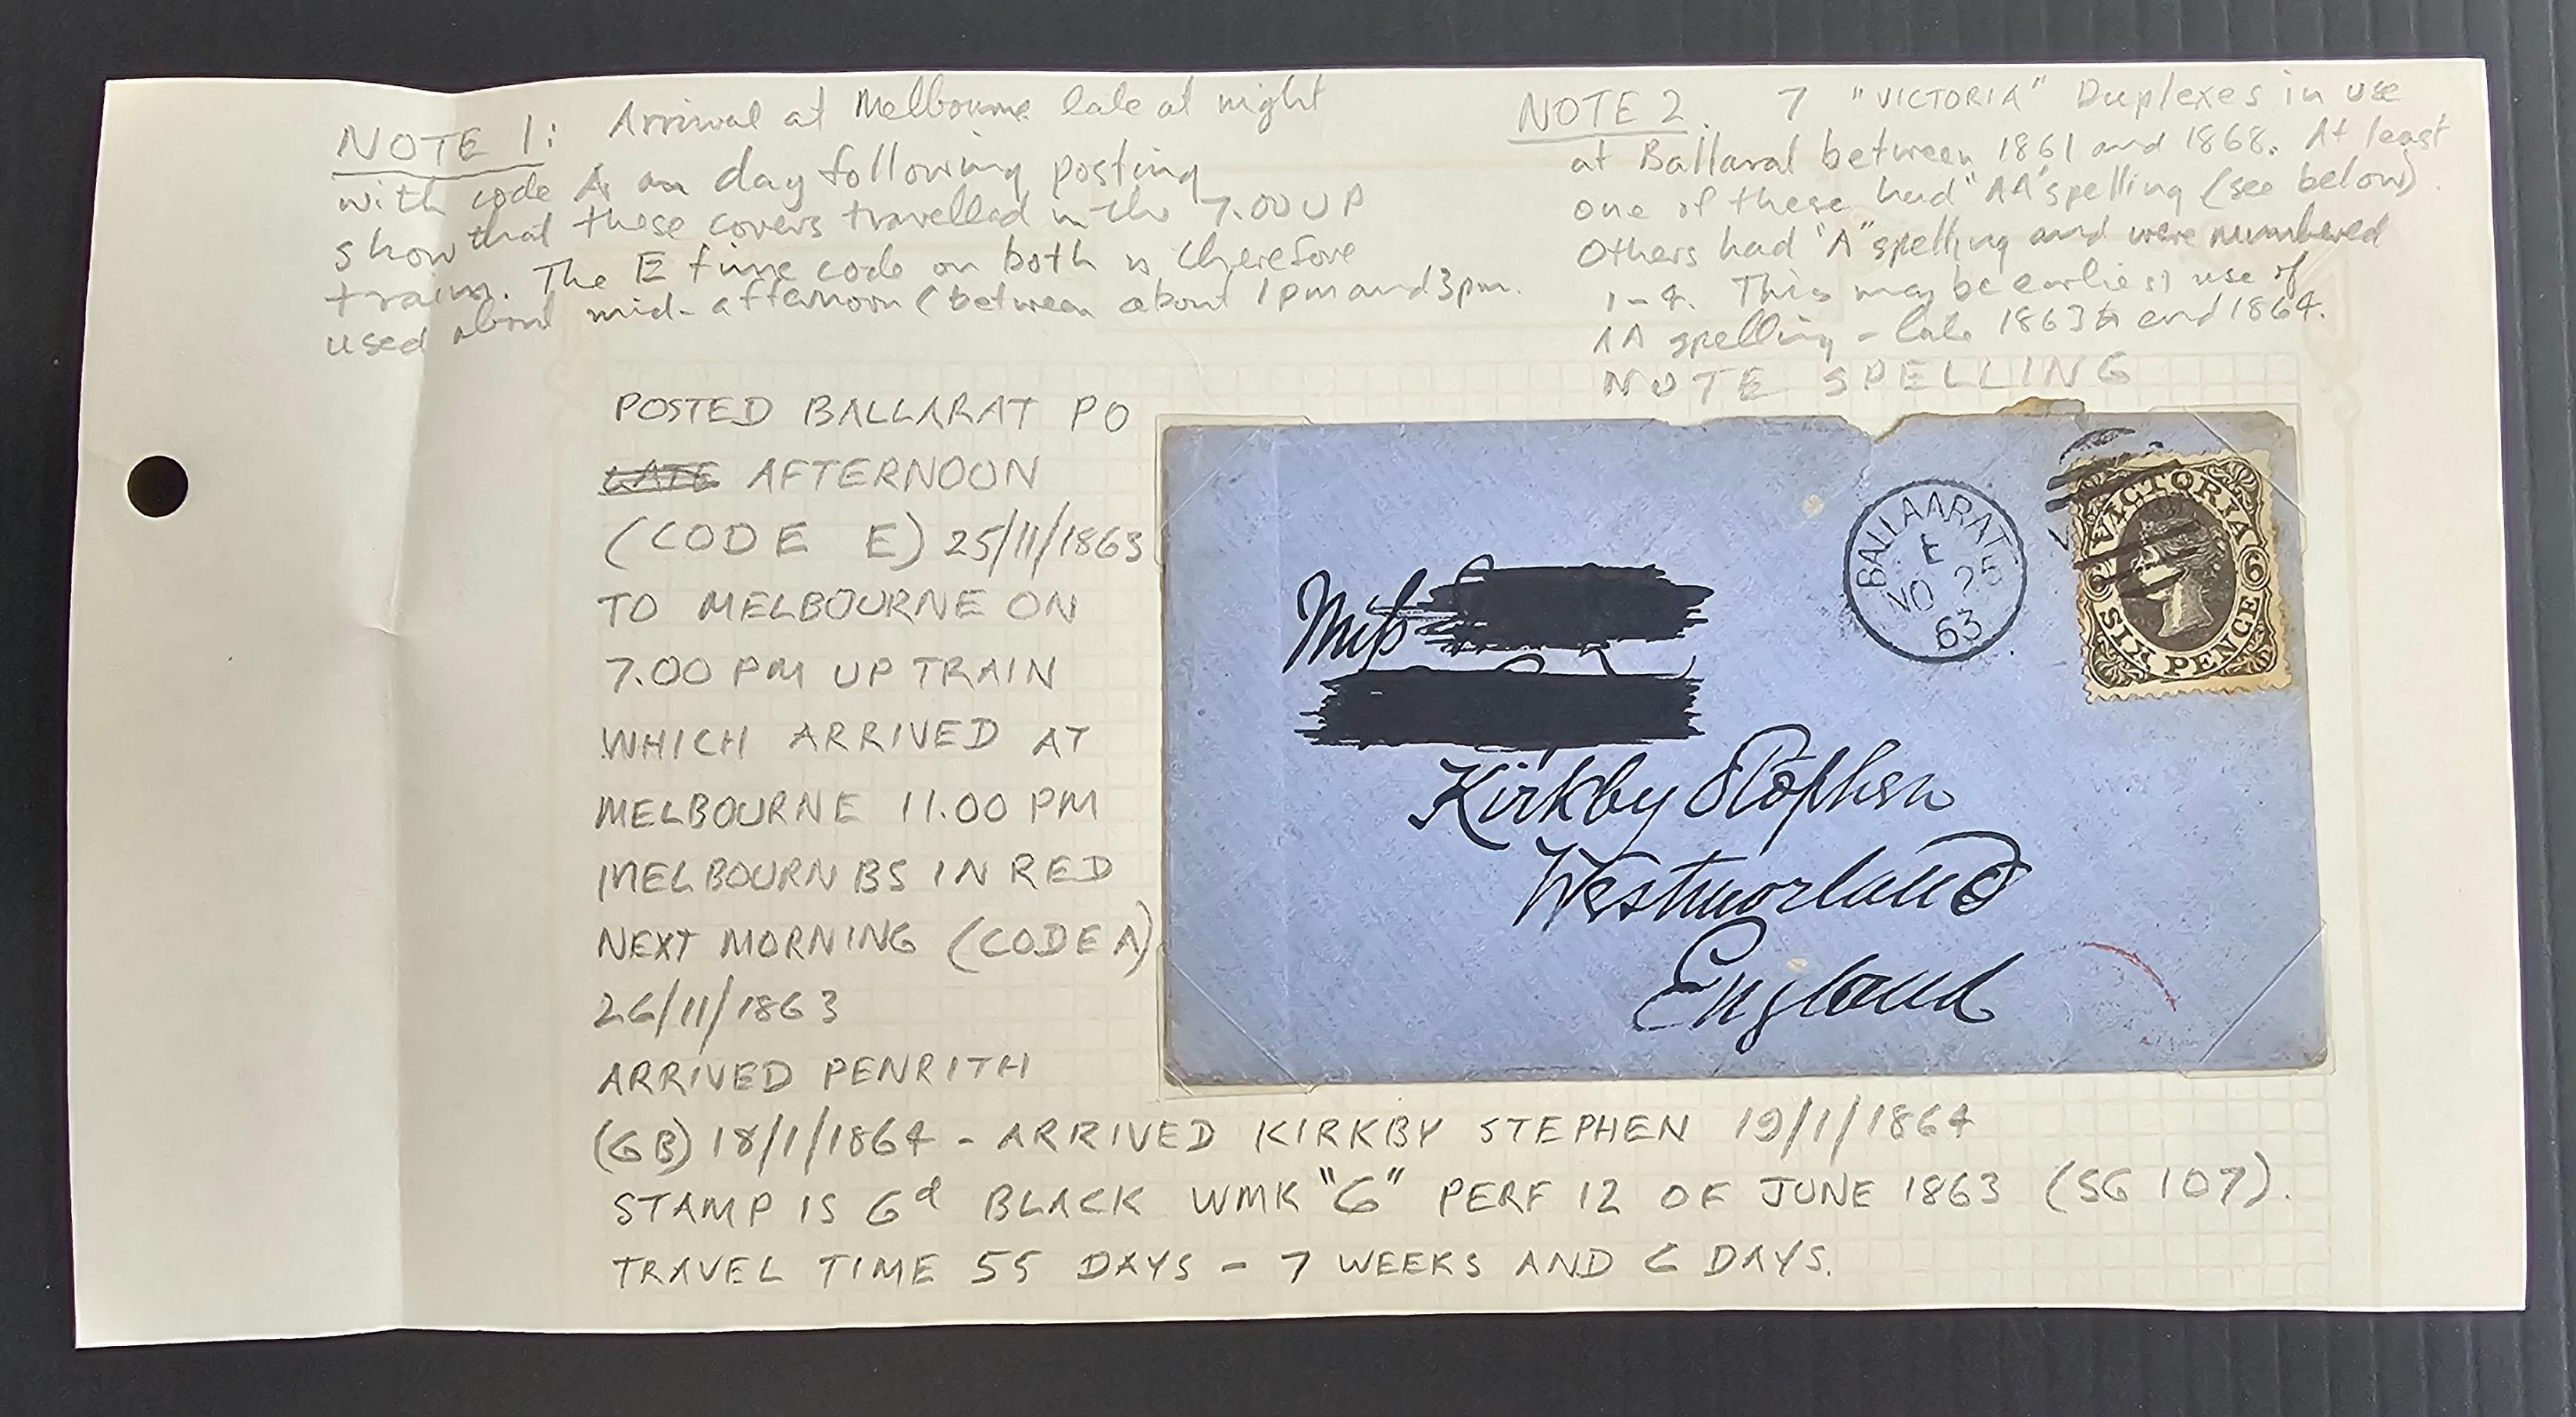 NOTE 1: Arrival at Melbourne late at night
with code A on day following posting
show that these covers travelled in the 7.00 UP
train. The E time code on both is therefore
used about mid-afternoon (between about 1pm and 3pm.
NOTE 2. 7 "VICTORIA" Duplexes in use
at Ballarat between 1861 and 1868. At least
one of these had "AA" spelling (see below).
Others had "A" spelling and were numbered
1-4. This may be earliest use of
AA spelling - late 1863 and 1864.
NOTE SPELLING
POSTED BALLARAT PO
AFTERNOON
(CODE E) 25/11/1863
TO MELBOURNE ON
7.00 PM UP TRAIN
WHICH ARRIVED AT
MELBOURNE 11.00 PM
MELBOURN BS IN RED
NEXT MORNING (CODE A)
26/11/1863
ARRIVED PENRITH
(GB) 18/1/1864 - ARRIVED KIRKBY STEPHEN 19/1/1864
STAMP IS 6d BLACK WMK "6" PERF 12 OF JUNE 1863 (SG 107).
TRAVEL TIME 55 DAYS - 7 WEEKS AND 6 DAYS.
BALLAARAT
E
NO 25
63
VICTORIA
6 6
SIX PENCE
Miss
Kirkby Stephen
Westmorland
England